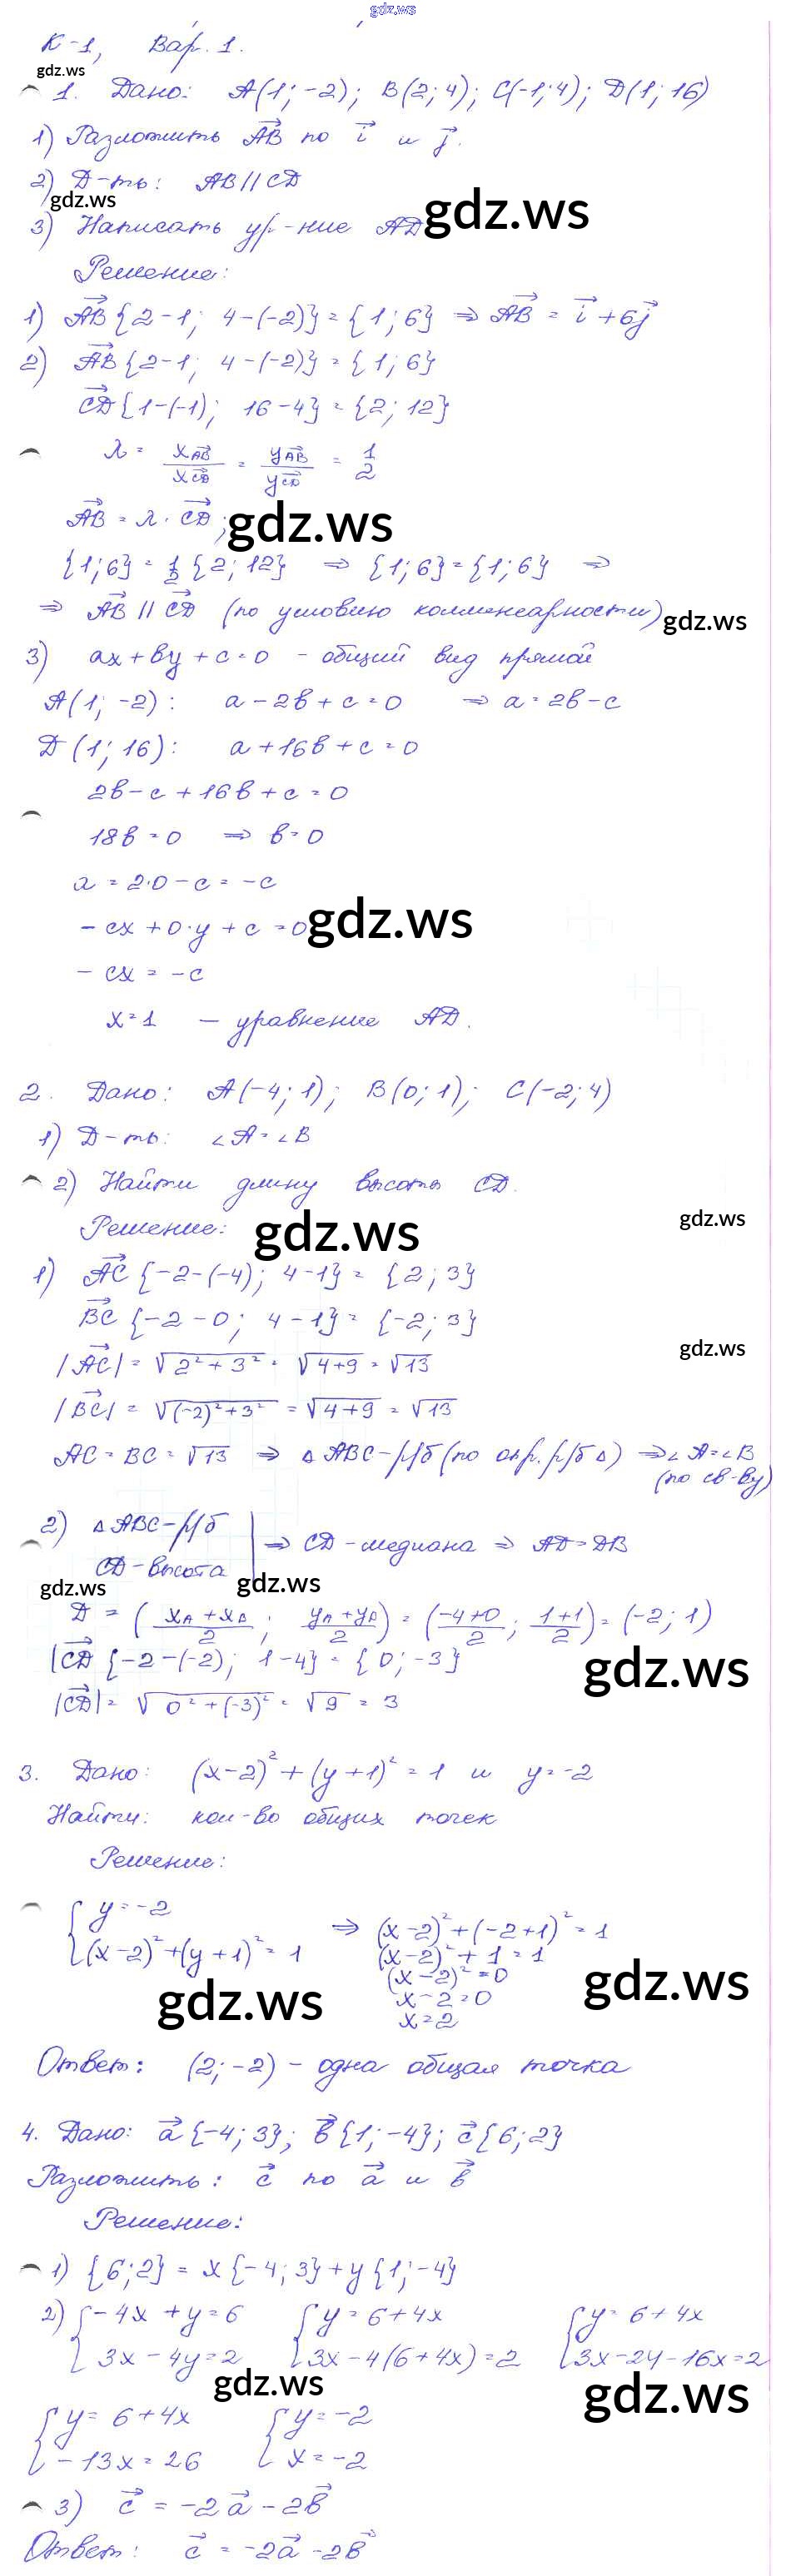 gdz.ws
К-1, Вар. 1.
gdz.ws
1. Дано: A(1; -2); B(2; 4); C(-1; 4); D(1; 16)
1) Разложить AB по i и j.
2) Д-ть: AB || CD
gdz.ws
3) Написать ур-ние AD
gdz.ws
Решение:
1) AB {2-1; 4-(-2)} = {1; 6} ⇒ AB = i + 6j
2) AB {2-1; 4-(-2)} = {1; 6}
CD {1-(-1); 16-4} = {2; 12}
λ = x AB / x CD = y AB / y CD = 1/2
AB = λ · CD;
gdz.ws
{1; 6} = 1/2 {2; 12} ⇒ {1; 6} = {1; 6} ⇒
⇒ AB || CD (по условию коллинеарности)
gdz.ws
3) ax + by + c = 0 - общий вид прямой
A(1; -2): a - 2b + c = 0 ⇒ a = 2b - c
D(1; 16): a + 16b + c = 0
2b - c + 16b + c = 0
18b = 0 ⇒ b = 0
a = 2·0 - c = -c
-cx + 0·y + c = 0
gdz.ws
-cx = -c
x = 1 - уравнение AD.
2. Дано: A(-4; 1); B(0; 1); C(-2; 4)
1) Д-ть: ∠A = ∠B
2) Найти длину высоты CD.
Решение:
gdz.ws
gdz.ws
1) AC {-2-(-4); 4-1} = {2; 3}
BC {-2-0; 4-1} = {-2; 3}
gdz.ws
|AC| = √(2² + 3²) = √(4+9) = √13
|BC| = √((-2)² + 3²) = √(4+9) = √13
AC = BC = √13 ⇒ △ABC - р/б (по опр. р/б △) ⇒ ∠A = ∠B
(по св-ву)
2) △ABC - р/б
CD - высота ⇒ CD - медиана ⇒ AD = DB
gdz.ws
gdz.ws
D = ((xA + xB)/2; (yA + yB)/2) = ((-4+0)/2; (1+1)/2) = (-2; 1)
|CD {-2-(-2); 1-4} = {0; -3}
gdz.ws
|CD| = √(0² + (-3)²) = √9 = 3
3. Дано: (x-2)² + (y+1)² = 1 и y = -2
Найти: кол-во общих точек
Решение:
{ y = -2
{ (x-2)² + (y+1)² = 1 ⇒ (x-2)² + (-2+1)² = 1
(x-2)² + 1 = 1
(x-2)² = 0
x - 2 = 0
x = 2
gdz.ws
gdz.ws
Ответ: (2; -2) - одна общая точка
4. Дано: a {-4; 3}; b {1; -4}; c {6; 2}
Разложить: c по a и b
Решение:
1) {6; 2} = x {-4; 3} + y {1; -4}
2) { -4x + y = 6 { y = 6 + 4x { y = 6 + 4x
{ 3x - 4y = 2 { 3x - 4(6+4x) = 2 { 3x - 24 - 16x = 2
gdz.ws
gdz.ws
{ y = 6 + 4x { y = -2
{ -13x = 26 { x = -2
3) c = -2a - 2b
Ответ: c = -2a - 2b